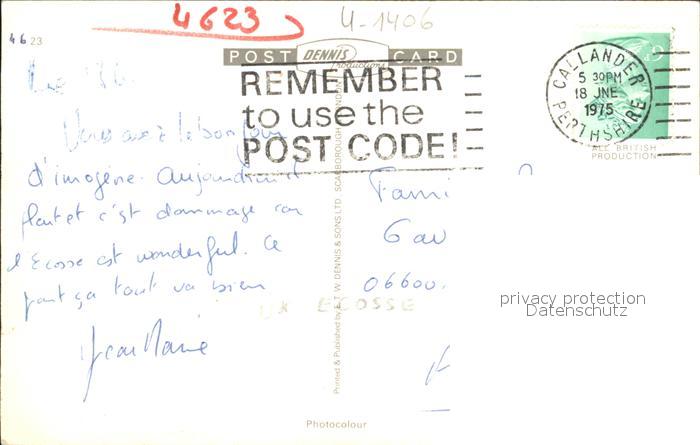 4623
U-1406
46 23
POST DENNIS Productions CARD
REMEMBER
to use the
POST CODE!
CALLANDER
PERTHSHIRE
5 30PM
18 JNE
1975
ALL BRITISH
PRODUCTION
Vous avez le bonjour
d'imogène. Aujourd'hui il
pleut et c'est dommage car
l'Ecosse est wonderful. Ce
part ça tout va bien
Jean Marie
Fami
Gav
06600.
UK ECOSSE
Printed & Published by E.T.W. DENNIS & SONS LTD. SCARBOROUGH
privacy protection
Datenschutz
Photocolour